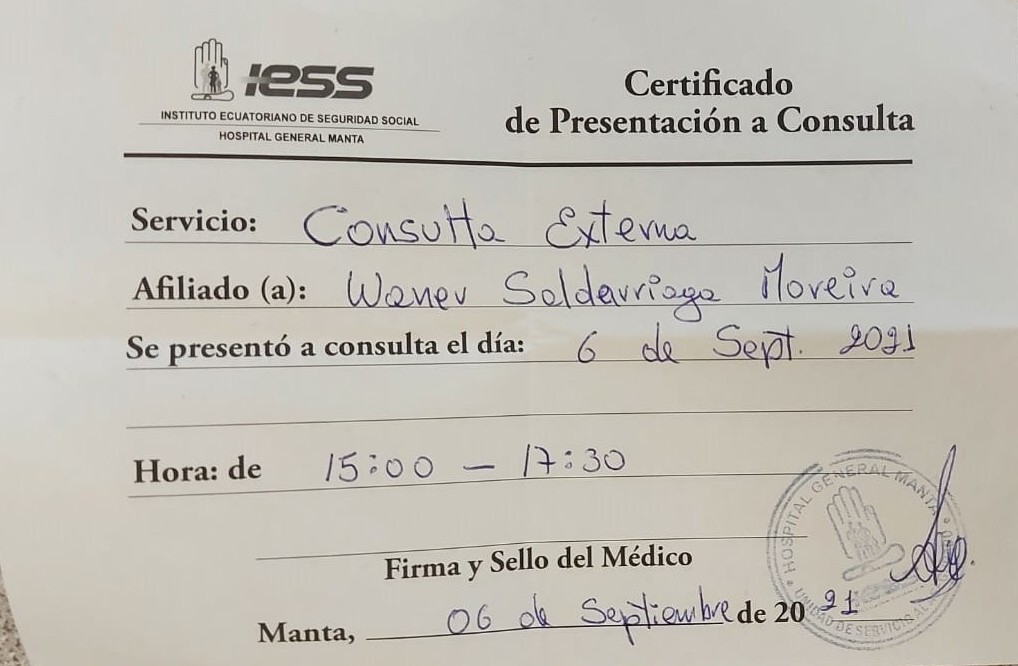 IESS
INSTITUTO ECUATORIANO DE SEGURIDAD SOCIAL
HOSPITAL GENERAL MANTA
Certificado
de Presentación a Consulta
Servicio: Consulta Externa
Afiliado (a): Waner Saldarriaga Moreira
Se presentó a consulta el día: 6 de Sept. 2021
Hora: de 15:00 - 17:30
HOSPITAL GENERAL MANTA
UNIDAD DE SERVICIO AL
Firma y Sello del Médico
Manta, 06 de Septiembre de 20 21